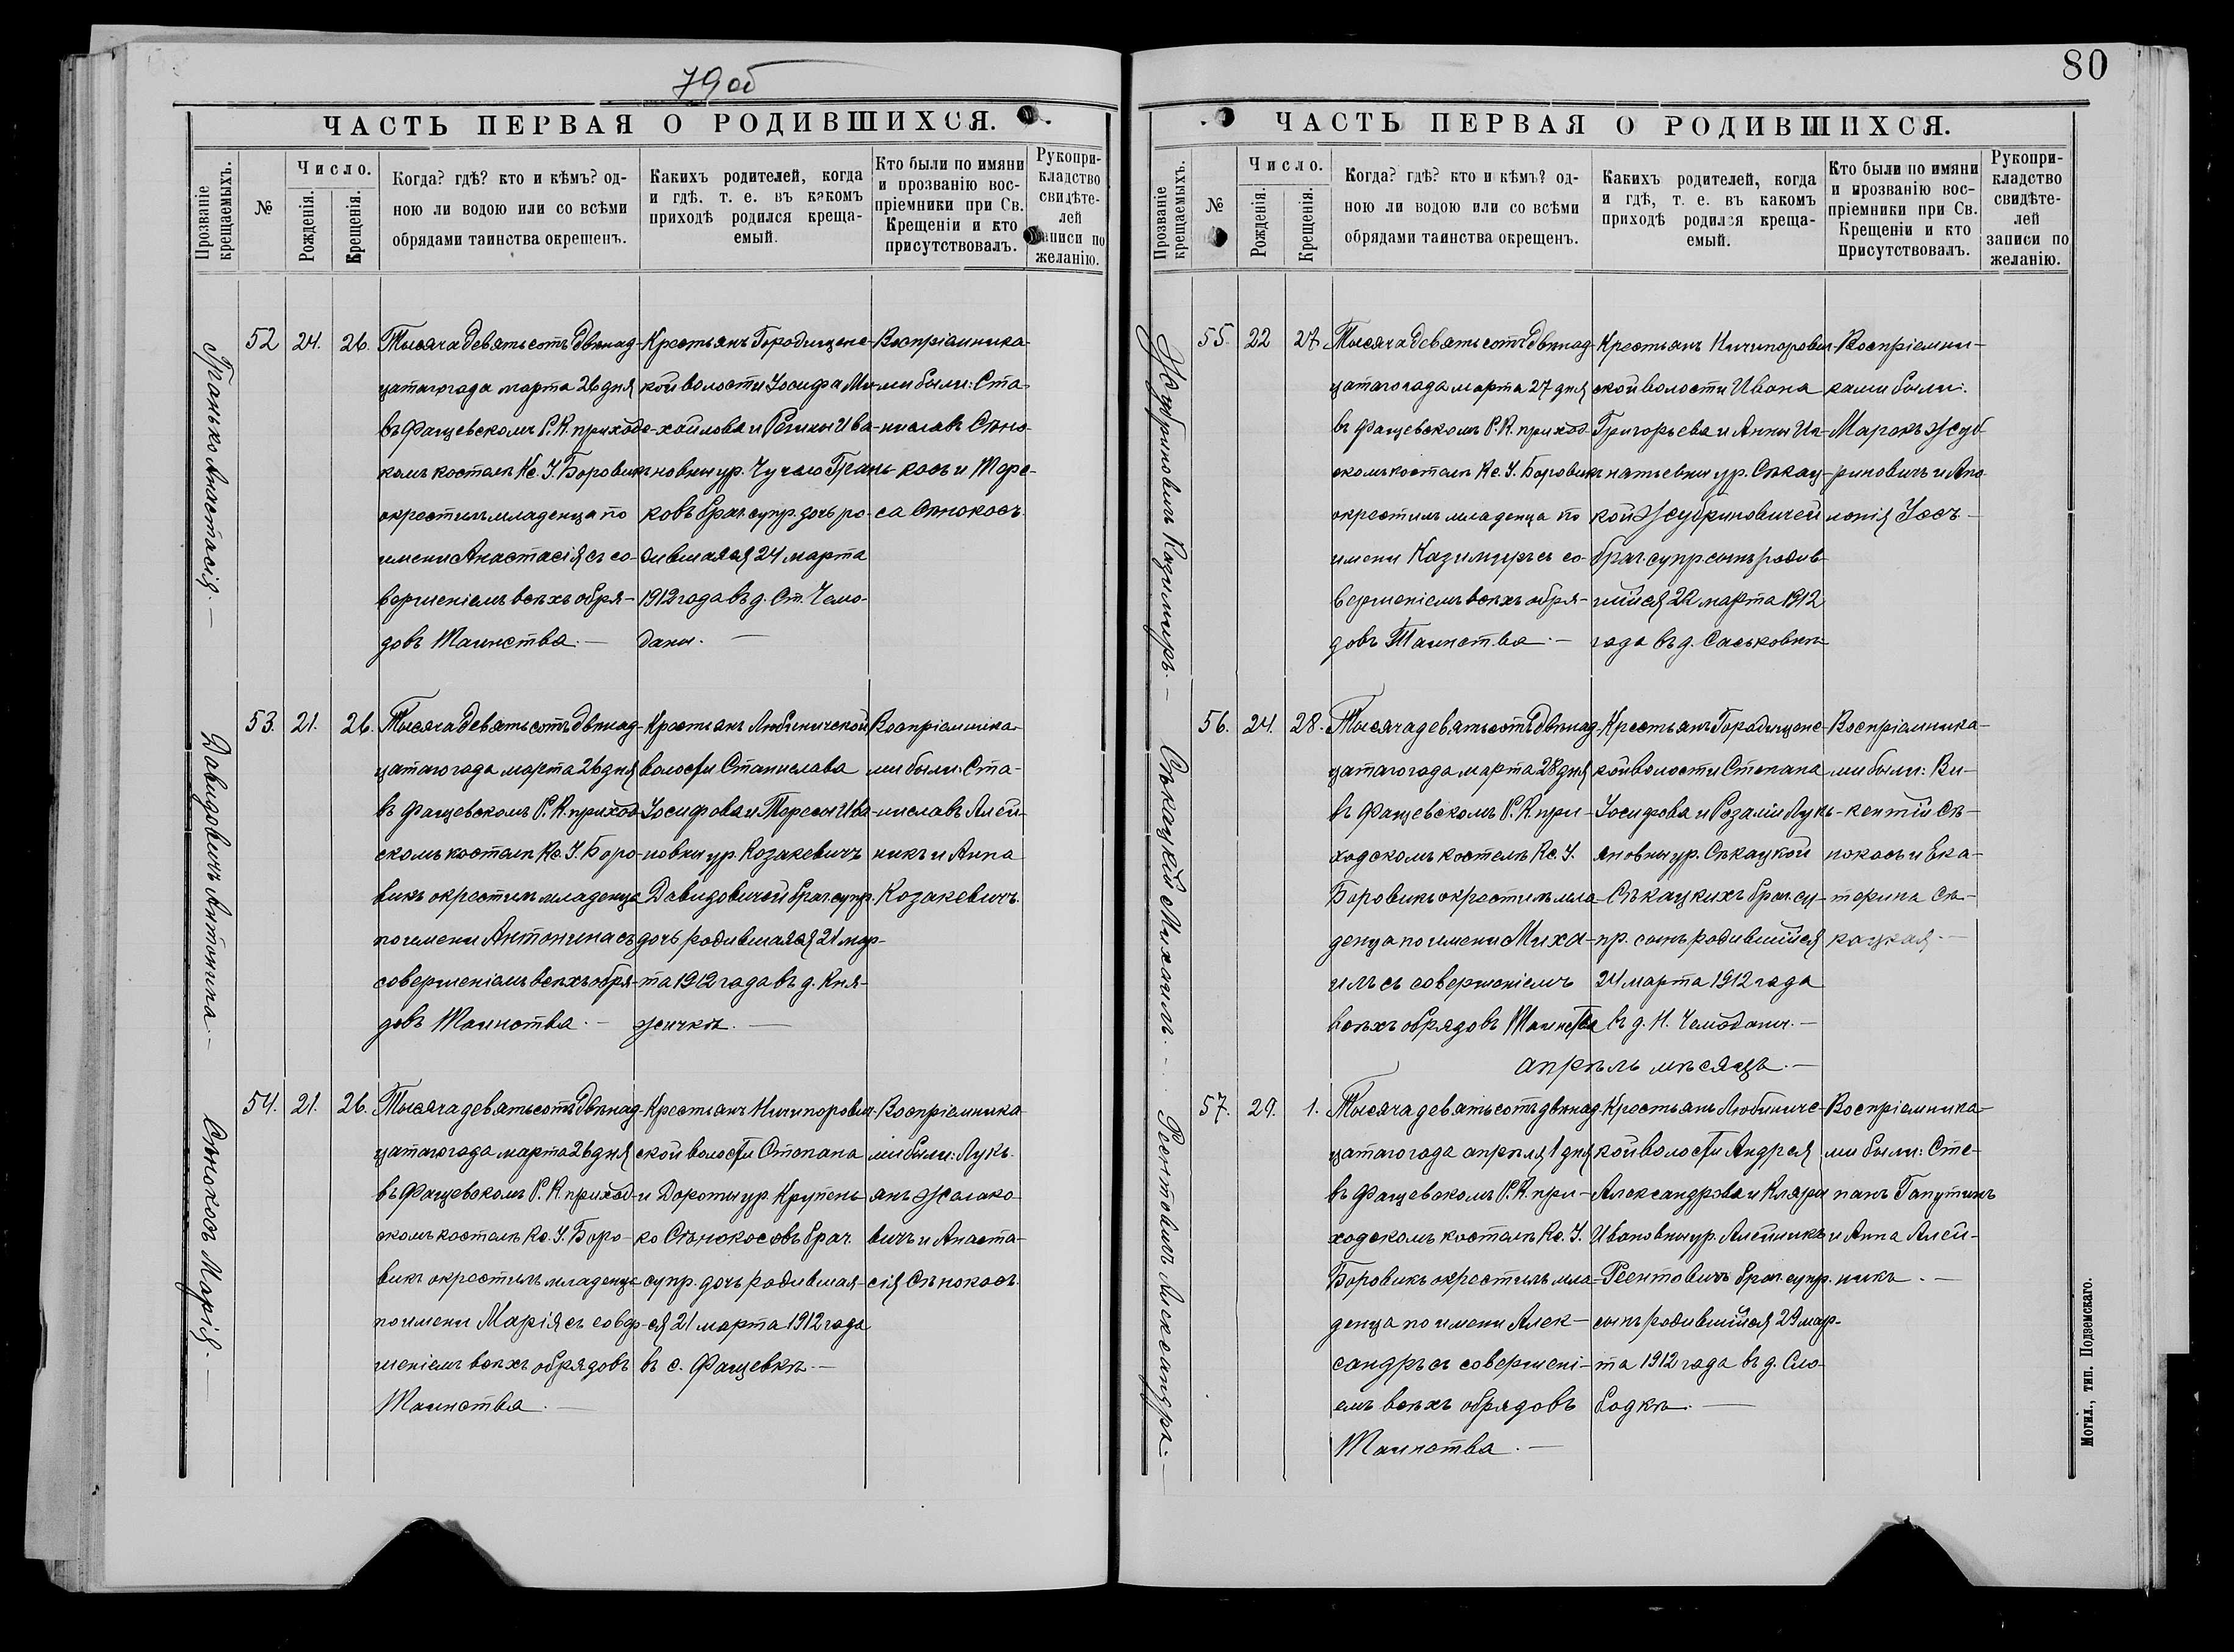 79 об
ЧАСТЬ ПЕРВАЯ О РОДИВШИХСЯ.
Прозваніе крещаемыхъ.
№
Число.
Рожденія.
Крещенія.
Когда? гдѣ? кто и кѣмъ? од-
ною ли водою или со всѣми
обрядами таинства окрещенъ.
Какихъ родителей, когда
и гдѣ, т. е. въ какомъ
приходѣ родился креща-
емый.
Кто были по имяни
и прозванію вос-
пріемники при Св.
Крещеніи и кто
присутствовалъ.
Рукопри-
кладство
свидѣте-
лей
записи по
желанію.
Гранько Анастасія. —
52
24.
26.
Тысяча девятьсотъ двѣнад-
цатаго года марта 26 дня
въ Фащевскомъ Р. К. приходс-
комъ костелѣ Кс. І. Боровикъ
окрестилъ младенца по
имени Анастасія съ со-
вершеніемъ всѣхъ обря-
довъ Таинства. —
Крестьянъ Городищенс-
кой волости Іосифа Ми-
хайлова и Регины Ива-
новны ур. Чучало Грань-
ковъ брач. супр. дочь ро-
дившаяся 24 марта
1912 года въ д. Ст. Чемо-
даны. —
Воспріемника-
ми были: Ста-
ниславъ Сѣно-
косъ и Тере-
са Сѣнокосъ.
Давидовичъ Антонина. —
53.
21.
26.
Тысяча девятьсотъ двѣнад-
цатаго года марта 26 дня
въ Фащевскомъ Р. К. приход-
скомъ костелѣ Кс. І. Боро-
викъ окрестилъ младенца
по имени Антонина съ
совершеніемъ всѣхъ обря-
довъ Таинства. —
Крестьянъ Любиничской
волости Станислава
Іосифова и Тересы Ива-
новны ур. Козакевичъ
Давидовичей брач. супр.
дочь родившаяся 21 мар-
та 1912 года въ д. Кня-
жичкѣ. —
Воспріемника-
ми были: Ста-
ниславъ Алей-
никъ и Анна
Козакевичъ.
Сѣнокосъ Марія. —
54.
21.
26.
Тысяча девятьсотъ двѣнад-
цатаго года марта 26 дня
въ Фащевскомъ Р. К. приход-
скомъ костелѣ Кс. І. Боро-
викъ окрестилъ младенца
по имени Марія съ совер-
шеніемъ всѣхъ обрядовъ
Таинства. —
Крестьянъ Ничипорович-
ской волости Степана
и Дороты ур. Крупень-
ко Сѣнокосовъ брач.
супр. дочь родившая-
ся 21 марта 1912 года
въ с. Фащевкѣ. —
Воспріемника-
ми были: Лукь-
янъ Жолако-
вичъ и Анаста-
сія Сѣнокосъ.
80
ЧАСТЬ ПЕРВАЯ О РОДИВШИХСЯ.
Прозваніе крещаемыхъ.
№
Число.
Рожденія.
Крещенія.
Когда? гдѣ? кто и кѣмъ? од-
ною ли водою или со всѣми
обрядами таинства окрещенъ.
Какихъ родителей, когда
и гдѣ, т. е. въ какомъ
приходѣ родился креща-
емый.
Кто были по имяни
и прозванію вос-
пріемники при Св.
Крещеніи и кто
присутствовалъ.
Рукопри-
кладство
свидѣте-
лей
записи по
желанію.
Жубриновичъ Казимиръ. —
55.
22
27
Тысяча девятьсотъ двѣнад-
цатаго года марта 27 дня
въ Фащевскомъ Р. К. приход-
скомъ костелѣ Кс. І. Боровикъ
окрестилъ младенца по
имени Казимиръ съ со-
вершеніемъ всѣхъ обря-
довъ Таинства. —
Крестьянъ Ничипорович-
ской волости Ивана
Григорьева и Анны Иг-
натьевны ур. Сѣкац-
кой Жубриновичей
брач. супр. сынъ родив-
шійся 22 марта 1912
года въ д. Саськовкѣ
Воспріемни-
ками были:
Марокъ Жуб-
риновичъ и Апо-
лонія Усъ —
Сѣкацкій Михаилъ. —
56.
24.
28.
Тысяча девятьсотъ двѣнад-
цатаго года марта 28 дня
въ Фащевскомъ Р. К. при-
ходскомъ костелѣ Кс. І.
Боровикъ окрестилъ мла-
денца по имени Миха-
илъ съ совершеніемъ
всѣхъ обрядовъ Таинства
Крестьянъ Городищенс-
кой волости Степана
Іосифова и Розаліи Лукь-
яновны ур. Сѣкацкой
Сѣкацкихъ брач. су-
пр. сынъ родившійся
24 марта 1912 года
въ д. Н. Чемоданы. —
Воспріемника-
ми были: Ви-
кентій Сѣ-
нокосъ и Ека-
терина Сѣ-
кацкая. —
апрѣль мѣсяца. —
Реентовичъ Александръ. —
57.
29.
1.
Тысяча девятьсотъ двѣнад-
цатаго года апрѣля 1 дня
въ Фащевскомъ Р. К. при-
ходскомъ костелѣ Кс. І.
Боровикъ окрестилъ мла-
денца по имени Алек-
сандръ съ совершені-
емъ всѣхъ обрядовъ
Таинства. —
Крестьянъ Любиничс-
кой волости Андрея
Александрова и Клары
Ивановны ур. Алейникъ
Реентовичъ брач. супр.
сынъ родившійся 29 мар-
та 1912 года въ д. Сло-
бодкѣ. —
Воспріемника-
ми были: Сте-
панъ Гапутинъ
и Анна Алей-
никъ. —
Могил., тип. Подземскаго.